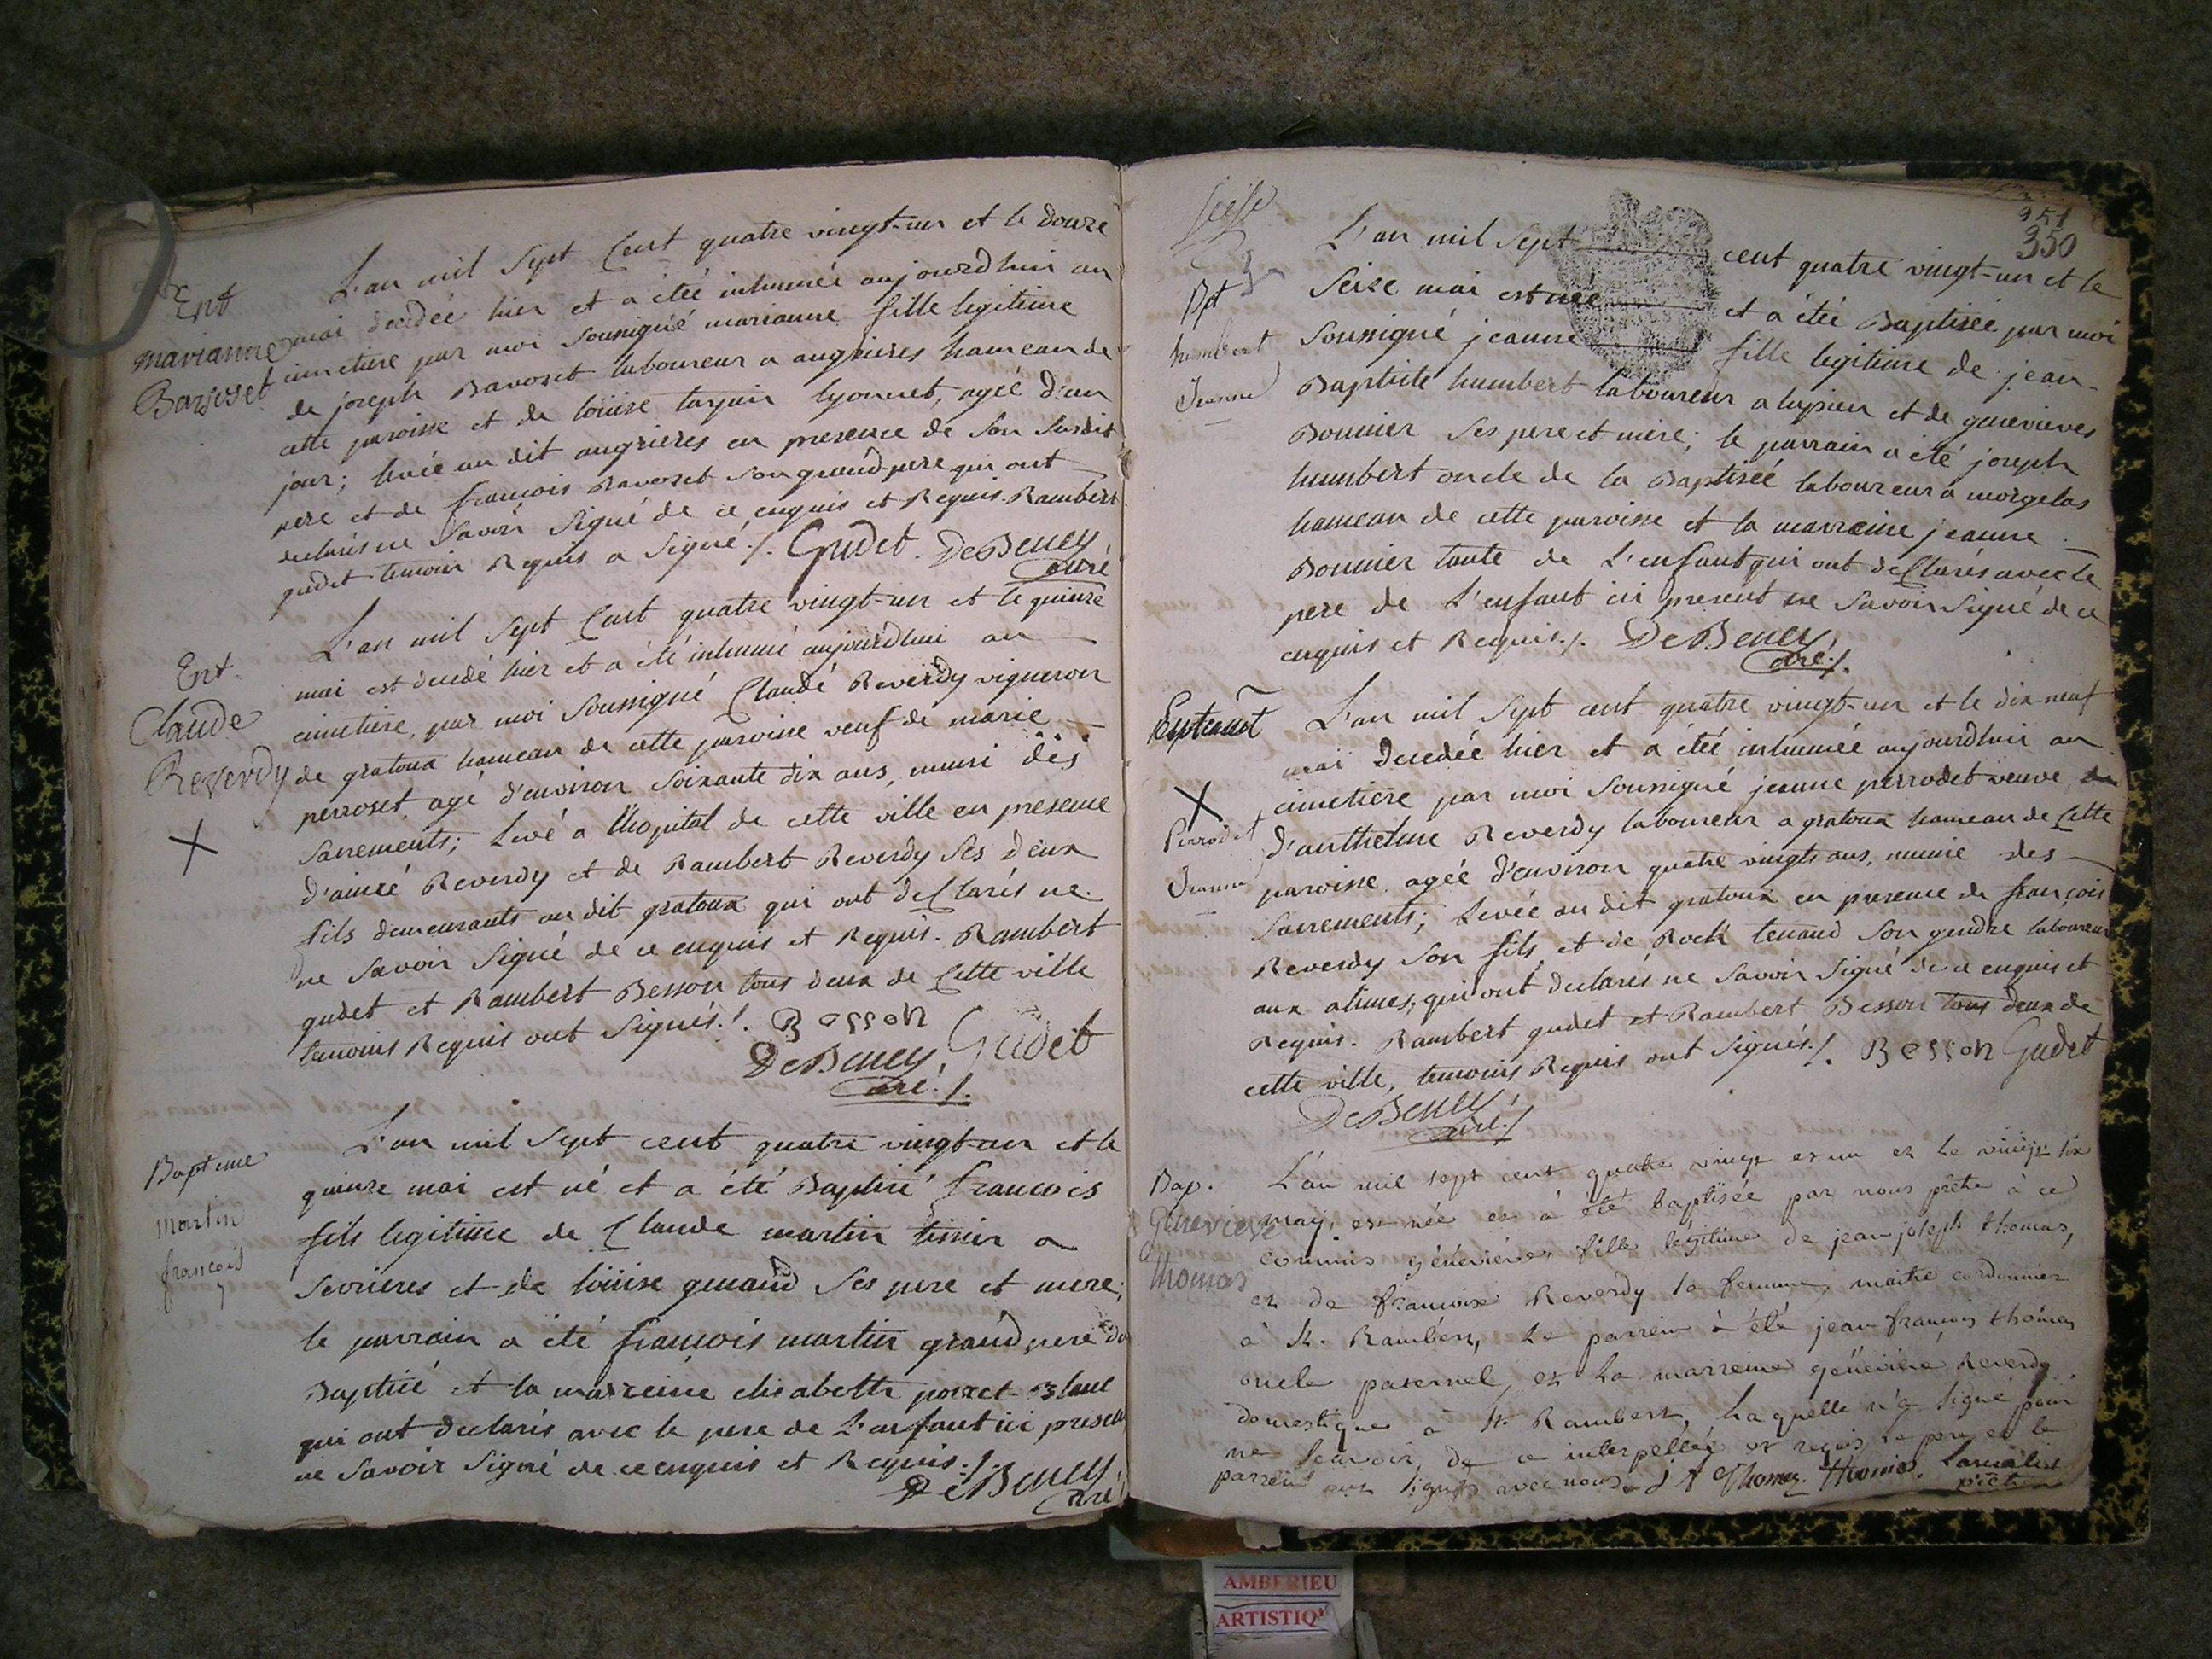 Ent
marianne
Barsoset
L'an mil Sept Cent quatre vingt-un et le douze
mai decedée hier et a été inhumée aujourdhui au
cimetiere par moi soussigné marianne fille legitime
de joseph Bavoset laboureur a angrieres hameau de
cette paroisse et de loüise tarpin lyonnet, agée d'un
jour; levée au dit angrieres en presence de son susdit
pere et de francois Bavozet son grand-pere qui ont
declarés ne Savoir Signé de ce enquis et Requis. Rambert
gudet temoin Requis a Signé ./. Gudet. DeBeney
curé
Ent.
Claude
Reverdy
X
L'an mil Sept Cent quatre vingt-un et le quinze
mai est decedé hier et a été inhumé aujourdhui au
cimetiere, par moi Soussigné Claude Reverdy vigneron
de gratoux hameau de cette paroisse veuf de marie
perroset, agé d'environ soixante dix ans, muni des
Sacrements; Levé a l'hopital de cette ville en presence
d'aimé Reverdy et de Rambert Reverdy ses deux
fils demeurants au dit gratoux qui ont deClarés ne
ne Savoir Signé de ce enquis et Requis. Rambert
gudet et Rambert Besson tous deux de Cette ville
temoins Requis ont Signés ./. Besson
DeBeney Gudet
curé ./.
Bapteme
martin
francois
L'an mil Sept cent quatre vingt-un et le
quinze mai est né et a été Baptisé francois
fils legitime de Claude martin tissier a
Sevrieres et de loüise guinand Ses pere et mere;
le parrain a été francois martin grand pere du
Baptisé et la marreine elisabeth
qui ont declarés avec le pere de L'enfant ici present
ne Savoir Signé de ce enquis et Requis ./.
DeBeney
curé
351
350
seise
Bpt
humbert
Jeanne
L'an mil Sept cent quatre vingt-un et le
Seise mai est née et a été Baptisée par moi
Soussigné jeanne fille legitime de jean-
Baptiste humbert laboureur a lupieu et de genevieve
Bonnier Ses pere et mere; le parrain a été joseph
humbert oncle de la Baptisée laboureur a morgelas
hameau de cette paroisse et la marreine jeanne
Bonnier tante de L'enfant qui ont deClarés avec le
pere de L'enfant ici present ne Savoir Signé de ce
enquis et Requis ./. DeBeney
curé ./.
X
Perrodet
Jeanne
L'an mil Sept cent quatre vingt-un et le dix-neuf
mai Decedée hier et a été inhumée aujourdhui au
cimetiere par moi Soussigné jeanne perrodet veuve
d'anthelme Reverdy laboureur a gratoux hameau de Cette
paroisse agée d'environ quatre vingts ans, munie des
Sacrements; Levée au dit gratoux en presence de francois
Reverdy Son fils et de Roch tenand Son gendre laboureur
aux alimes; qui ont declarés ne Savoir Signé de ce enquis et
Requis. Rambert gudet et Rambert Besson tous deux de
cette ville, temoins Requis ont Signés ./. Besson Gudet
DeBeney
curé ./
Bap.
Genevieve
thomas
L'an mil sept cent quatre vingt et un et le vingt six
may, est née et à été baptisée par nous prêtre à ce
commis géneviéve fille légitime de jean joseph thomas,
et de francoise Reverdy sa femme, maitre cordonnier
à St. Rambert, Le parrein à été jean francois thomas
oncle paternel, et La marreine géneviéve Reverdy
domestique à St. Rambert, Laquelle n'a signé pour
ne scavoir, de ce interpellée et requis, Le pere et le
parrein ont signés avec nous. J f Thomas. thomas.
prêtre
AMBERIEU
ARTISTIQ